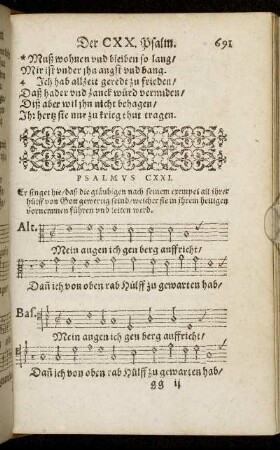 Der CXX. Psalm. 691
* Muß wohnen vnd bleiben so lang/
Mir ist vnder jhn angst vnd bang.
4 Ich hab allzeit geredt zu frieden/
Daß hader vnd zanck würd vermiden/
Diß aber wil jhn nicht behagen/
Ihr hertz sie nur zu krieg thut tragen.
PSALMVS CXXI.
Er singet hie/ daß die gläubigen nach seinem exempel all ihrer
hülff von Gott gewertig seind/ welcher sie in ihrem heiligen
vornemmen führen vnd leiten werd.
Alt.
Mein augen ich gen berg auffricht/
Dañ ich von oben rab Hülff zu gewarten hab/
Bas.
Mein augen ich gen berg auffricht/
Dañ ich von oben rab Hülff zu gewarten hab/
gg ij